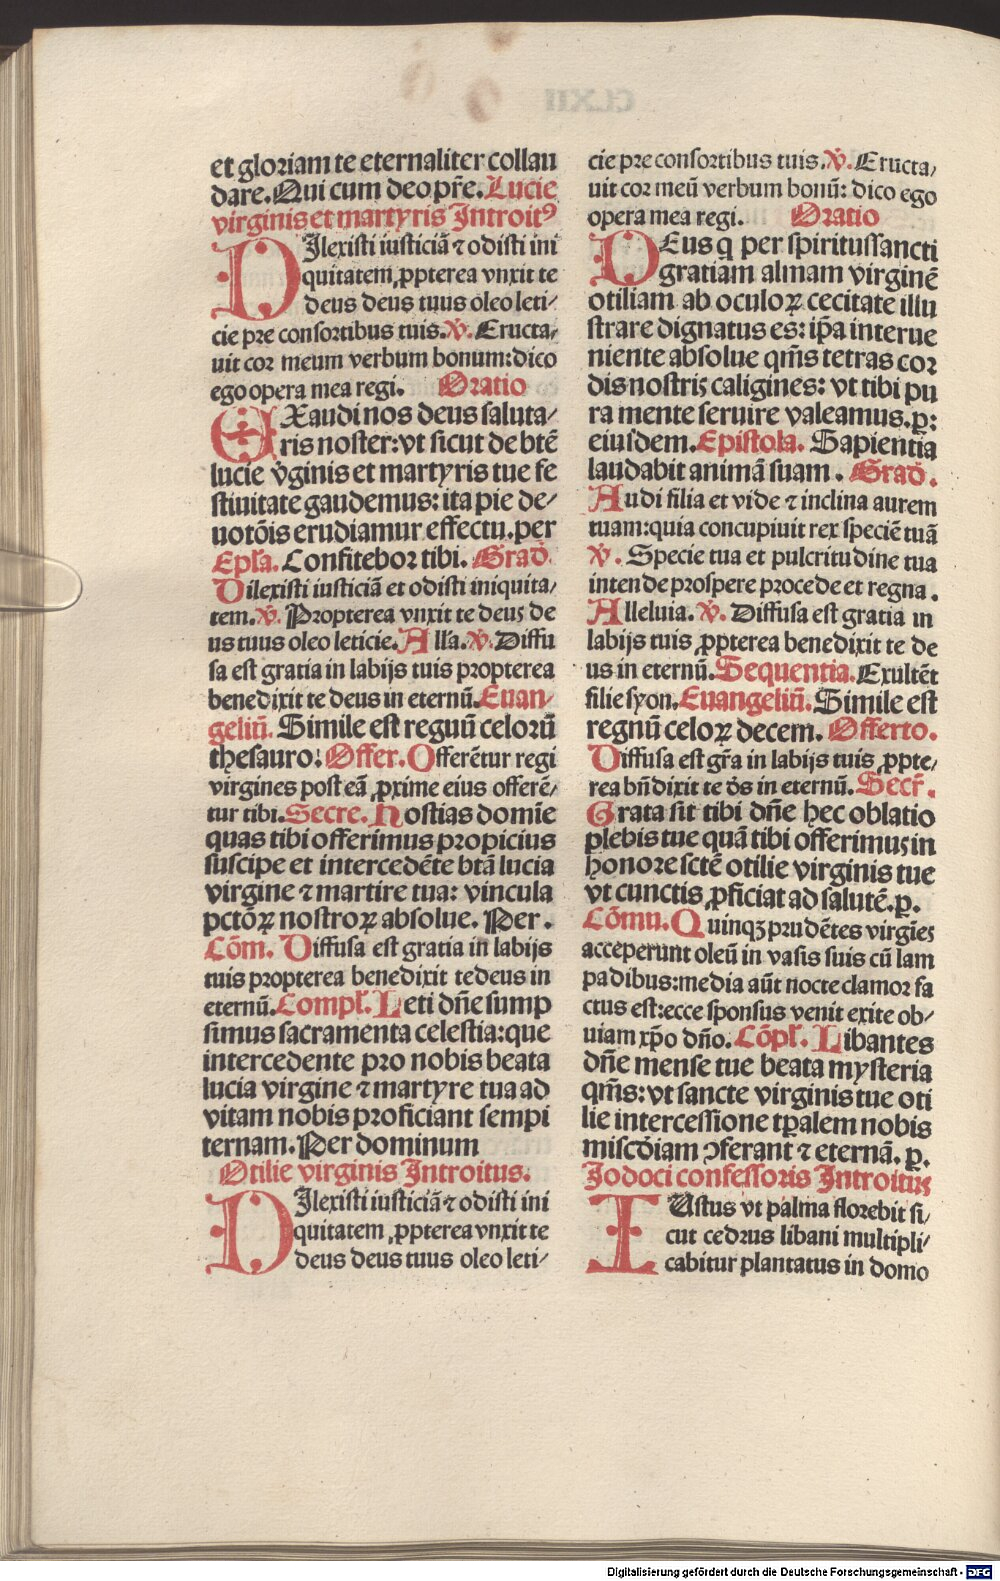 et gloriam te eternaliter collau
dare. Qui cum deo pr̄e. Lucie
virginis et martyris Introitꝰ
DIlexisti iusticiā ⁊ odisti ini
quitatem ꝓpterea vnxit te
deus deus tuus oleo leti⸗
cie pre consortibus tuis. ℣. Eructa⸗
uit cor meum verbum bonum: dico
ego opera mea regi. Oratio
EXaudi nos deus saluta⸗
ris noster: vt sicut de btē
lucie v̄ginis et martyris tue fe
stiuitate gaudemus: ita pie de⸗
uotōis erudiamur effectu. per
Epl̄a. Confitebor tibi. Grad̄.
Dilexisti iusticiā et odisti iniquita⸗
tem. ℣. Propterea vnxit te deus de
us tuus oleo leticie. Alla. ℣. Diffu
sa est gratia in labijs tuis propterea
benedixit te deus in eternū. Euan⸗
geliū. Simile est regnū celorū
thesauro: Offer. Offerētur regi
virgines post eā ꝓxime eius offerē⸗
tur tibi. Secre. Hostias domīe
quas tibi offerimus propicius
suscipe et intercedēte btā lucia
virgine ⁊ martire tua: vincula
pctōꝝ nostroꝝ absolue. Per.
Cōm. Diffusa est gratia in labijs
tuis propterea benedixit te deus in
eternū. Compl̄. Leti dn̄e sump
simus sacramenta celestia: que
intercedente pro nobis beata
lucia virgine ⁊ martyre tua ad
vitam nobis proficiant sempi
ternam. Per dominum
Otilie virginis Introitus.
DIlexisti iusticiā ⁊ odisti ini
quitatem ꝓpterea vnxit te
deus deus tuus oleo leti⸗
cie pre consortibus tuis. ℣. Eructa⸗
uit cor meū verbum bonū: dico ego
opera mea regi. Oratio
DEus q per spiritussancti
gratiam almam virginē
otiliam ab oculoꝝ cecitate illu
strare dignatus es: ip̄a interue
niente absolue qm̄s tetras cor
dis nostris caligines: vt tibi pu
ra mente seruire valeamus. ꝑ:
eiusdem. Epistola. Sapientia
laudabit animā suam. Grad̄.
Audi filia et vide ⁊ inclina aurem
tuam: quia concupiuit rex speciē tuā
℣. Specie tua et pulcritudine tua
intende prospere procede et regna.
Alleluia. ℣. Diffusa est gratia in
labijs tuis ꝓpterea benedixit te de
us in eternū. Sequentia. Exultēt
filie syon. Euangeliū. Simile est
regnū celoꝝ decem. Offerto.
Diffusa est gr̄a in labijs tuis ꝓpte⸗
rea bn̄dixit te d̄s in eternū. Secr̄.
Grata sit tibi dn̄e hec oblatio
plebis tue quā tibi offerimus in
honore sctē otilie virginis tue
vt cunctis ꝓficiat ad salutē. ꝑ.
Cōmu. Quinqꝫ prudētes virgīes
acceperunt oleū in vasis suis cū lam
padibus: media aūt nocte clamor fa
ctus est: ecce sponsus venit exite ob⸗
uiam xp̄o dn̄o. Cōpl̄. Libantes
dn̄e mense tue beata mysteria
qm̄s: vt sancte virginis tue oti
lie intercessione tꝑalem nobis
mis̄cdiam ꝯferant ⁊ eternā. ꝑ.
Jodoci confessoris Introitus
IUstus vt palma florebit si⸗
cut cedrus libani multipli⸗
cabitur plantatus in domo
Digitalisierung gefördert durch die Deutsche Forschungsgemeinschaft - DFG